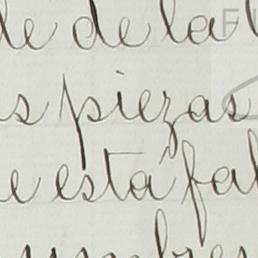 de de la
s piezas
e está fal